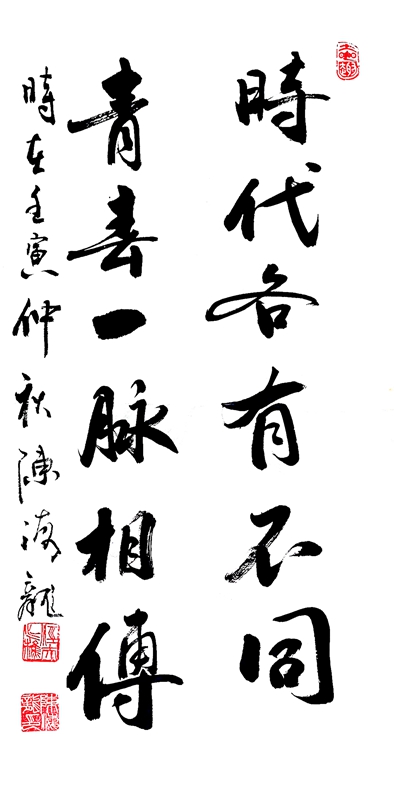 時代各有不同
青春一脉相傳
時在壬寅仲秋陳海龍